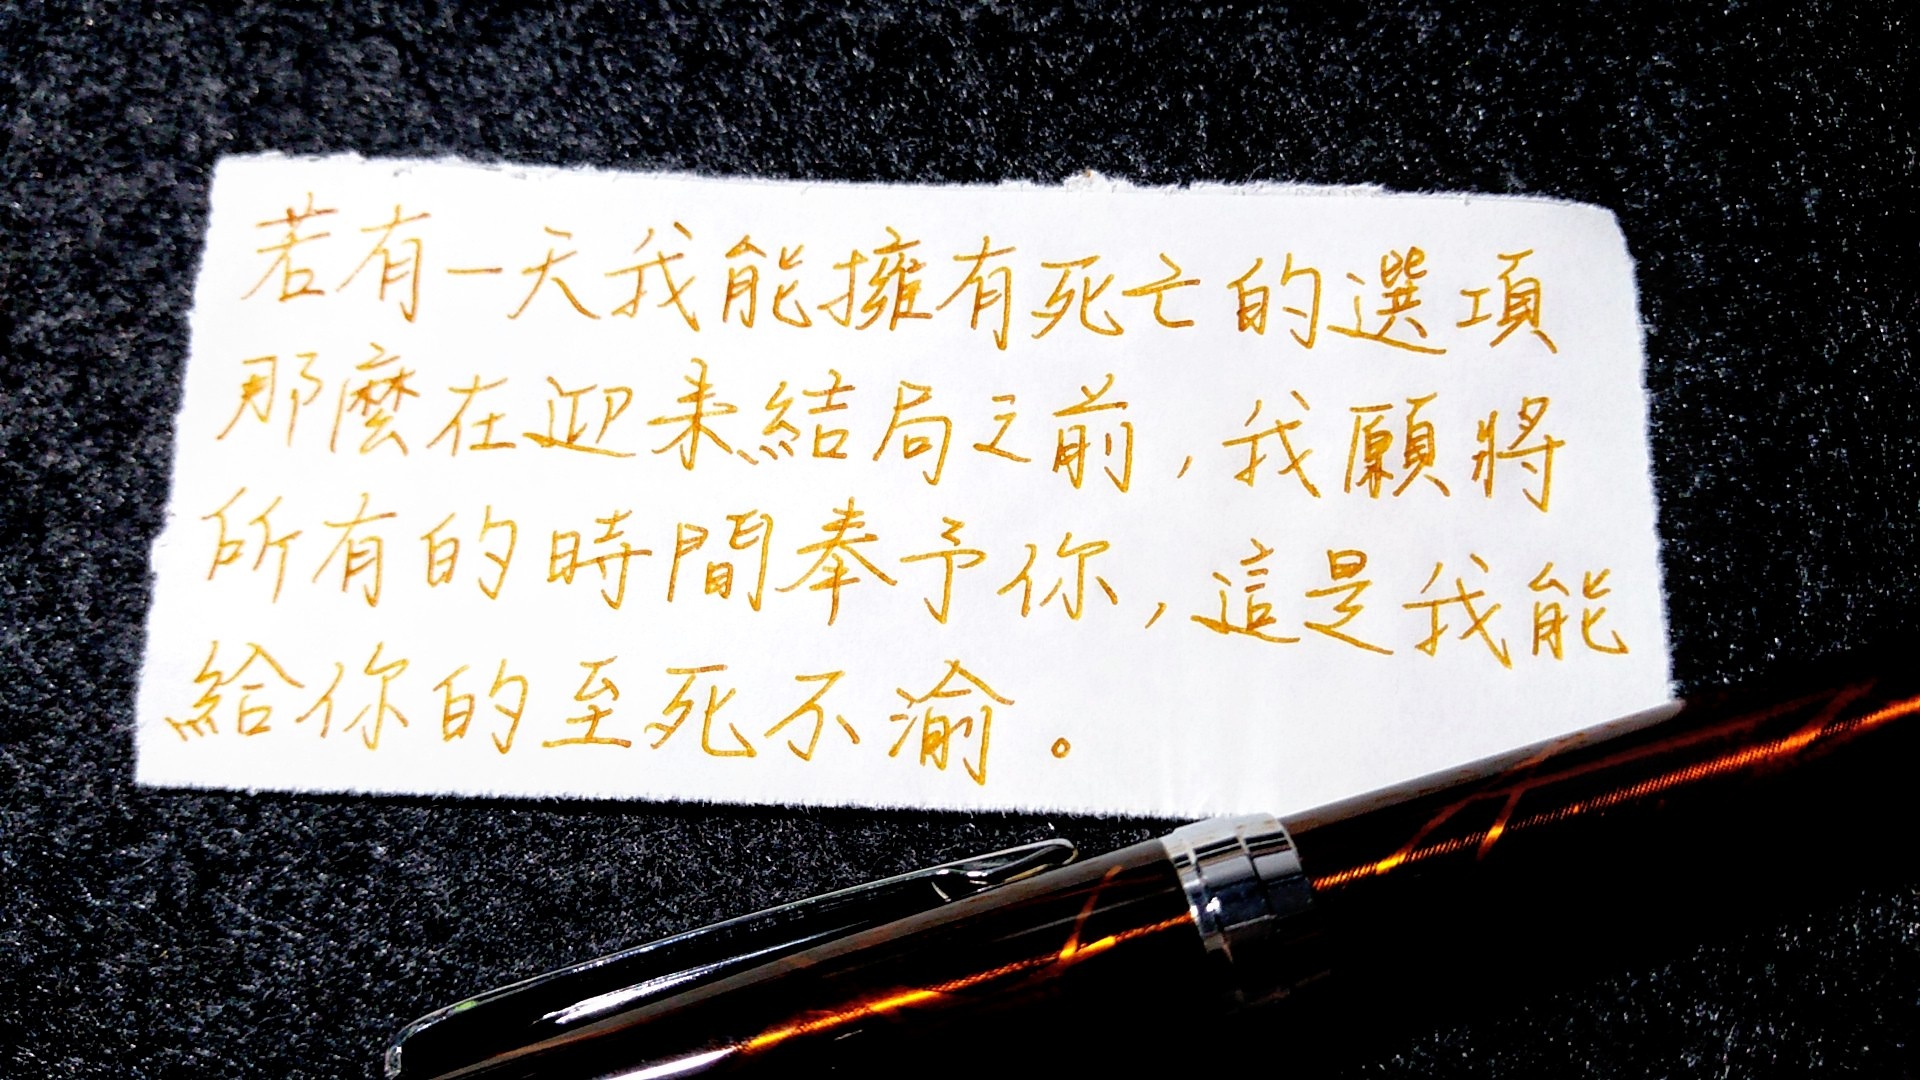 若有一天我能擁有死亡的選項
那麼在迎來結局之前,我願將
所有的時間奉予你,這是我能
給你的至死不渝。